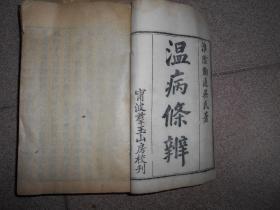 淮陰鞠通吳氏著
温病條辨
甯波羣玉山房校刊